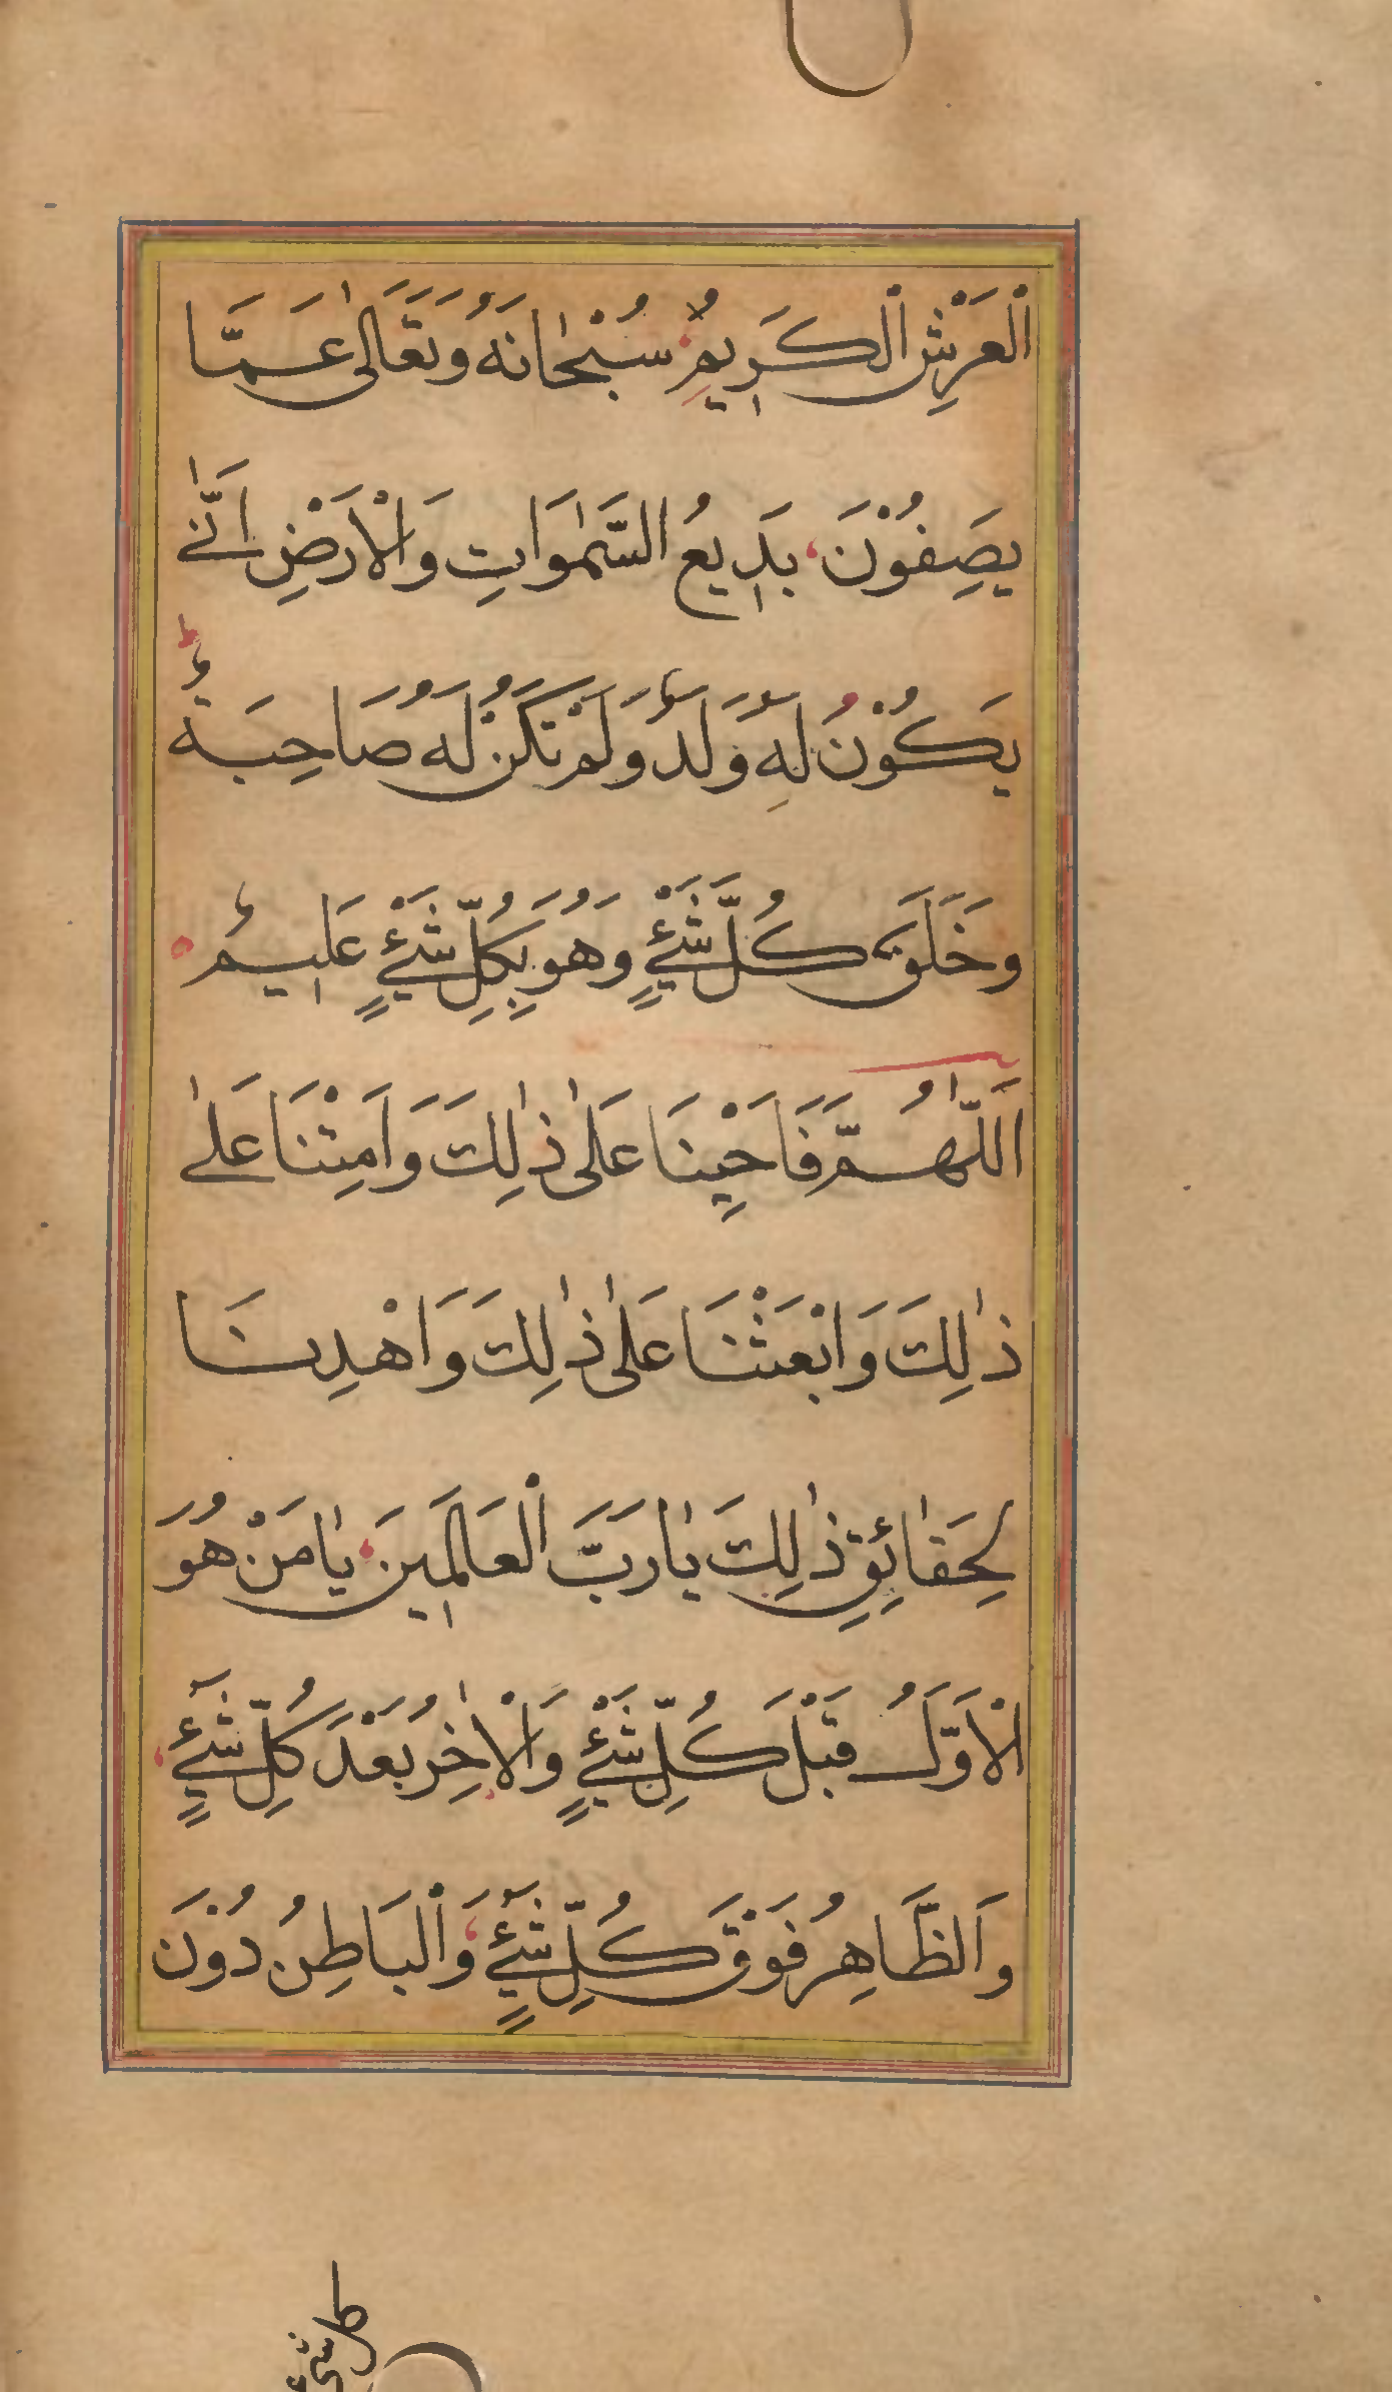 اَلْعَرْشِ الْكَرِيمِ سُبْحَانَهُ وَتَعَالٰى عَمَّا
يَصِفُوْنَ، بَدِيعُ السَّمٰوَاتِ وَالْاَرْضِ اَنّٰى
يَكُوْنُ لَهُ وَلَدٌ وَلَمْ تَكُنْ لَهُ صَاحِبَةٌ
وَخَلَقَ كُلَّ شَيْءٍ وَهُوَ بِكُلِّ شَيْءٍ عَلِيمٌ
اَللّٰهُمَّ فَاَحْيِنَا عَلٰى ذٰلِكَ وَاَمِتْنَا عَلٰى
ذٰلِكَ وَابْعَثْنَا عَلٰى ذٰلِكَ وَاهْدِنَا
لِحَقٰائِقِ ذٰلِكَ يٰارَبَّ الْعَالَمِينَ، يٰامَنْ هُوَ
الْاَوَّلُ قَبْلَ كُلِّ شَيْءٍ وَالْاٰخِرُ بَعْدَ كُلِّ شَيْءٍ،
وَالظَّاهِرُ فَوْقَ كُلِّ شَيْءٍ، وَالْبَاطِنُ دُوْنَ
كل شئ